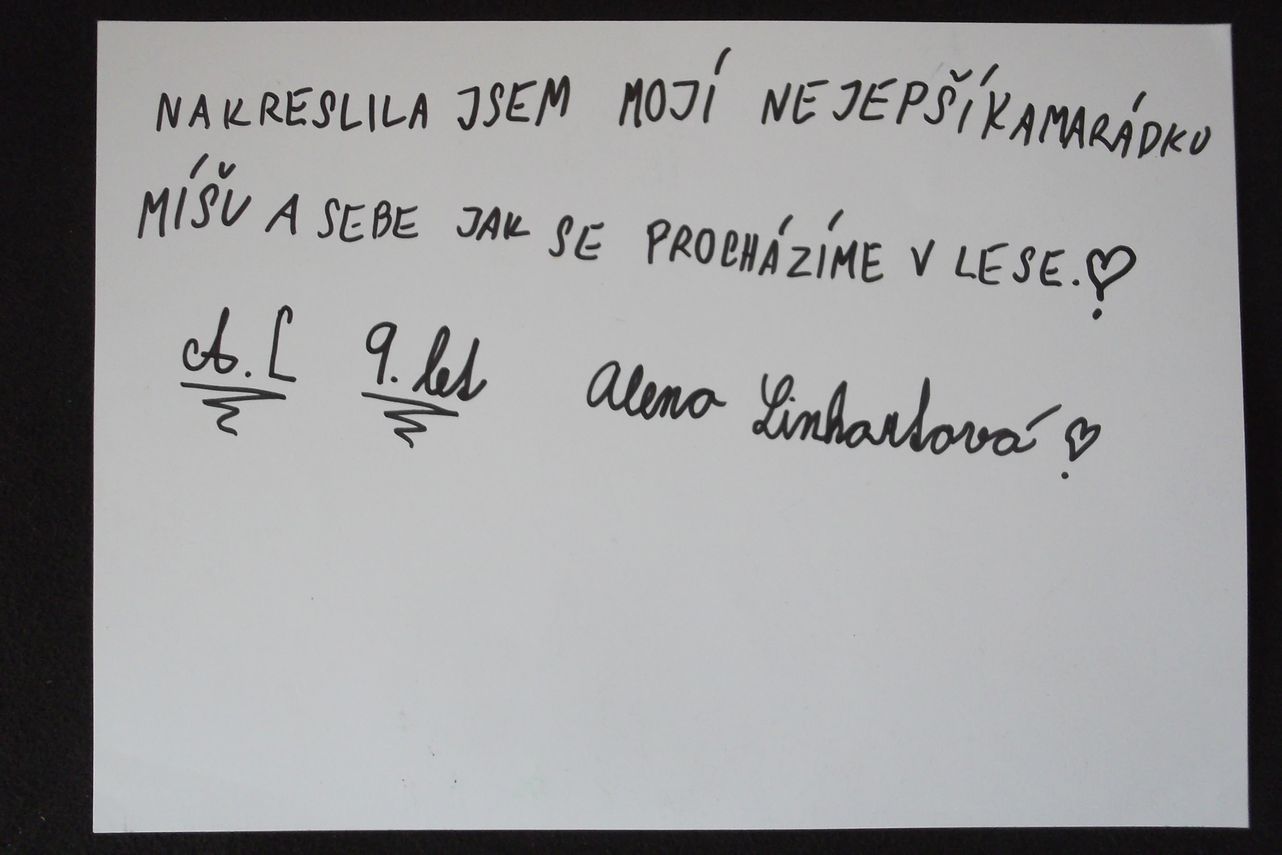 NAKRESLILA JSEM MOJÍ NEJEPŠÍ KAMARÁDKU
MÍŠU A SEBE JAK SE PROCHÁZÍME V LESE.
A. L 9. let Alena Linhartová